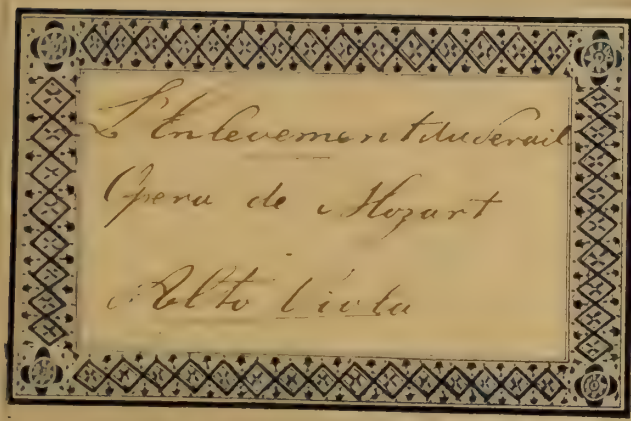 L'Enlevement du Serail
Opera de Mozart
Alto Viola